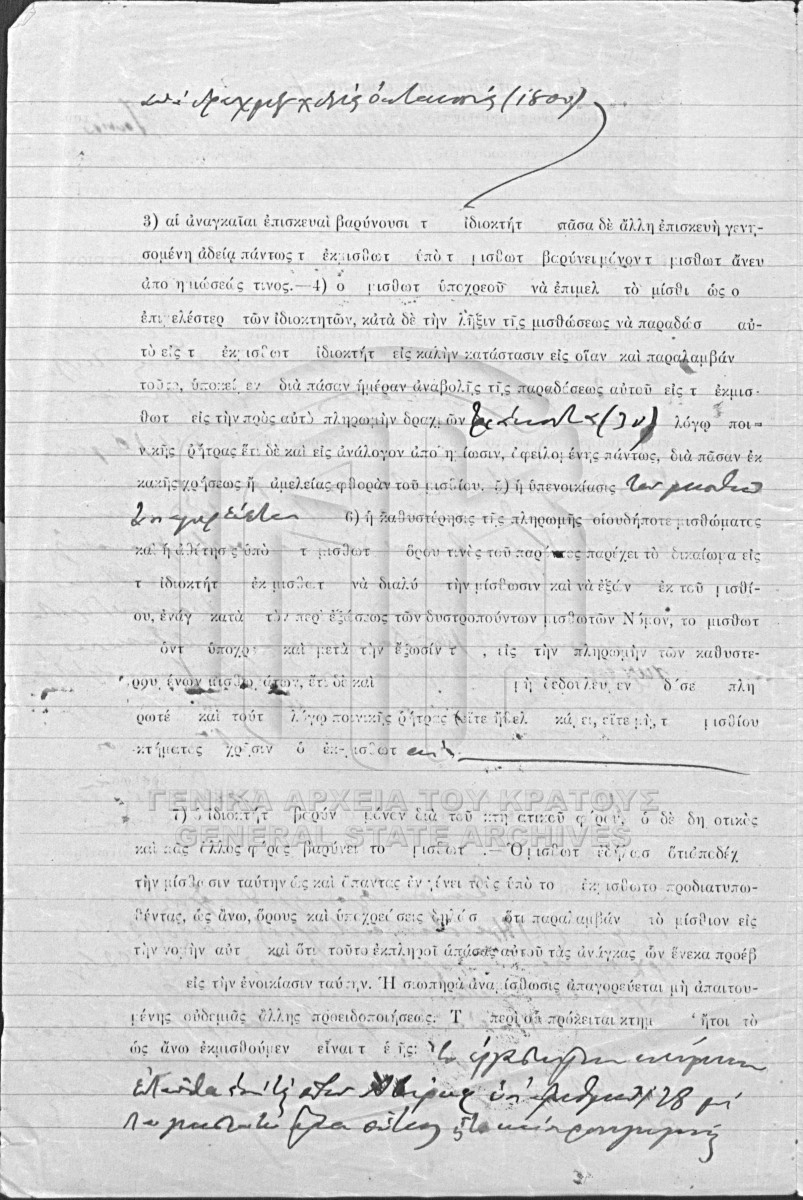 δραχμὰς χιλίας ὀκτακοσίας (1800)
3) αἱ ἀναγκαῖαι ἐπισκευαὶ βαρύνουσι τ ἰδιοκτήτ πᾶσα δὲ ἄλλη ἐπισκευὴ γενη-
σομένη ἀδείᾳ πάντως τ ἐκμισθωτ ὑπὸ τ μισθωτ βαρύνει μόνον τ μισθωτ ἄνευ
ἀποζημιώσεώς τινος.—4) ὁ μισθωτ ὑποχρεοῦ νὰ ἐπιμελ τὸ μίσθι ὡς ὁ
ἐπιμελέστερ τῶν ἰδιοκτητῶν, κατὰ δὲ τὴν λῆξιν τῆς μισθώσεως νὰ παραδώσ αὐ-
τὸ εἰς τ ἐκμισθωτ ἰδιοκτήτ εἰς καλὴν κατάστασιν εἰς οἵαν καὶ παραλαμβάν
τοῦτο, ὑποκείμεν διὰ πᾶσαν ἡμέραν ἀναβολῆς τῆς παραδόσεως αὐτοῦ εἰς τ ἐκμισ-
θωτ εἰς τὴν πρὸς αὐτὸ πληρωμὴν δραχμῶν τριάκοντα (30) λόγῳ ποι-
νικῆς ῥήτρας ἔτι δὲ καὶ εἰς ἀνάλογον ἀποζημίωσιν, ὀφειλομένης πάντως, διὰ πᾶσαν ἐκ
κακῆς χρήσεως ἢ ἀμελείας φθορὰν τοῦ μισθίου. 5) ἡ ὑπενοικίασις τοῦ μισθίου
ἀπαγορεύεται 6) ἡ καθυστέρησις τῆς πληρωμῆς οἱουδήποτε μισθώματος
καὶ ἡ ἀθέτησις ὑπὸ τ μισθωτ ὅρου τινὸς τοῦ παρόντος παρέχει τὸ δικαίωμα εἰς
τ ἰδιοκτήτ ἐκμισθωτ νὰ διαλύ τὴν μίσθωσιν καὶ νὰ ἐξών ἐκ τοῦ μισθί-
ου, ἐνάγ κατὰ τὸν περὶ ἐξώσεως τῶν δυστροπούντων μισθωτῶν Νόμον, το μισθωτ
όντ ὑποχρε καὶ μετὰ τὴν ἔξωσίν τ , εἰς τὴν πληρωμὴν τῶν καθυστε-
ρουμένων μισθωμάτων, ἔτι δὲ καὶ μὴ δεδουλευμεν δόσε πλη
ρωτέ καὶ τούτ λόγῳ ποινικῆς ῥήτρας εἴτε ἤθελ κάμει, εἴτε μὴ, τ μισθίου
κτήματος χρῆσιν ὁ ἐκμισθωτ
ΓΕΝΙΚΑ ΑΡΧΕΙΑ ΤΟΥ ΚΡΑΤΟΥΣ
GENERAL STATE ARCHIVES
7) ὁ ἰδιοκτήτ βαρύν μόνον διὰ τοῦ κτηματικοῦ φόρου, ὁ δὲ δημοτικὸς
καὶ πᾶς ἄλλος φόρος βαρύνει το μισθωτ .— Ὁ μισθωτ ἐδήλωσ ὅτι ἀποδέχ
τὴν μίσθωσιν ταύτην ὡς καὶ ἅπαντας ἐν γένει τοὺς ὑπὸ το ἐκμισθωτο προδιατυπω-
θέντας, ὡς ἄνω, ὅρους καὶ ὑποχρεώσεις δηλώσ ὅτι παραλαμβάν τὸ μίσθιον εἰς
τὴν νομὴν αὐτ καὶ ὅτι τοῦτο ἐκπληροῖ ἁπάσας αὐτοῦ τὰς ἀνάγκας ὧν ἕνεκα προέβ
εἰς τὴν ἐνοικίασιν ταύτην. Ἡ σιωπηρὰ ἀναμίσθωσις ἀπαγορεύεται μὴ ἀπαιτου-
μένης οὐδεμιᾶς ἄλλης προειδοποιήσεως. Τ περὶ οὗ πρόκειται κτημ ἤτοι τὸ
ὡς ἄνω ἐκμισθούμεν εἶναι τ ἑξῆς:
ἀριθμὸν 28